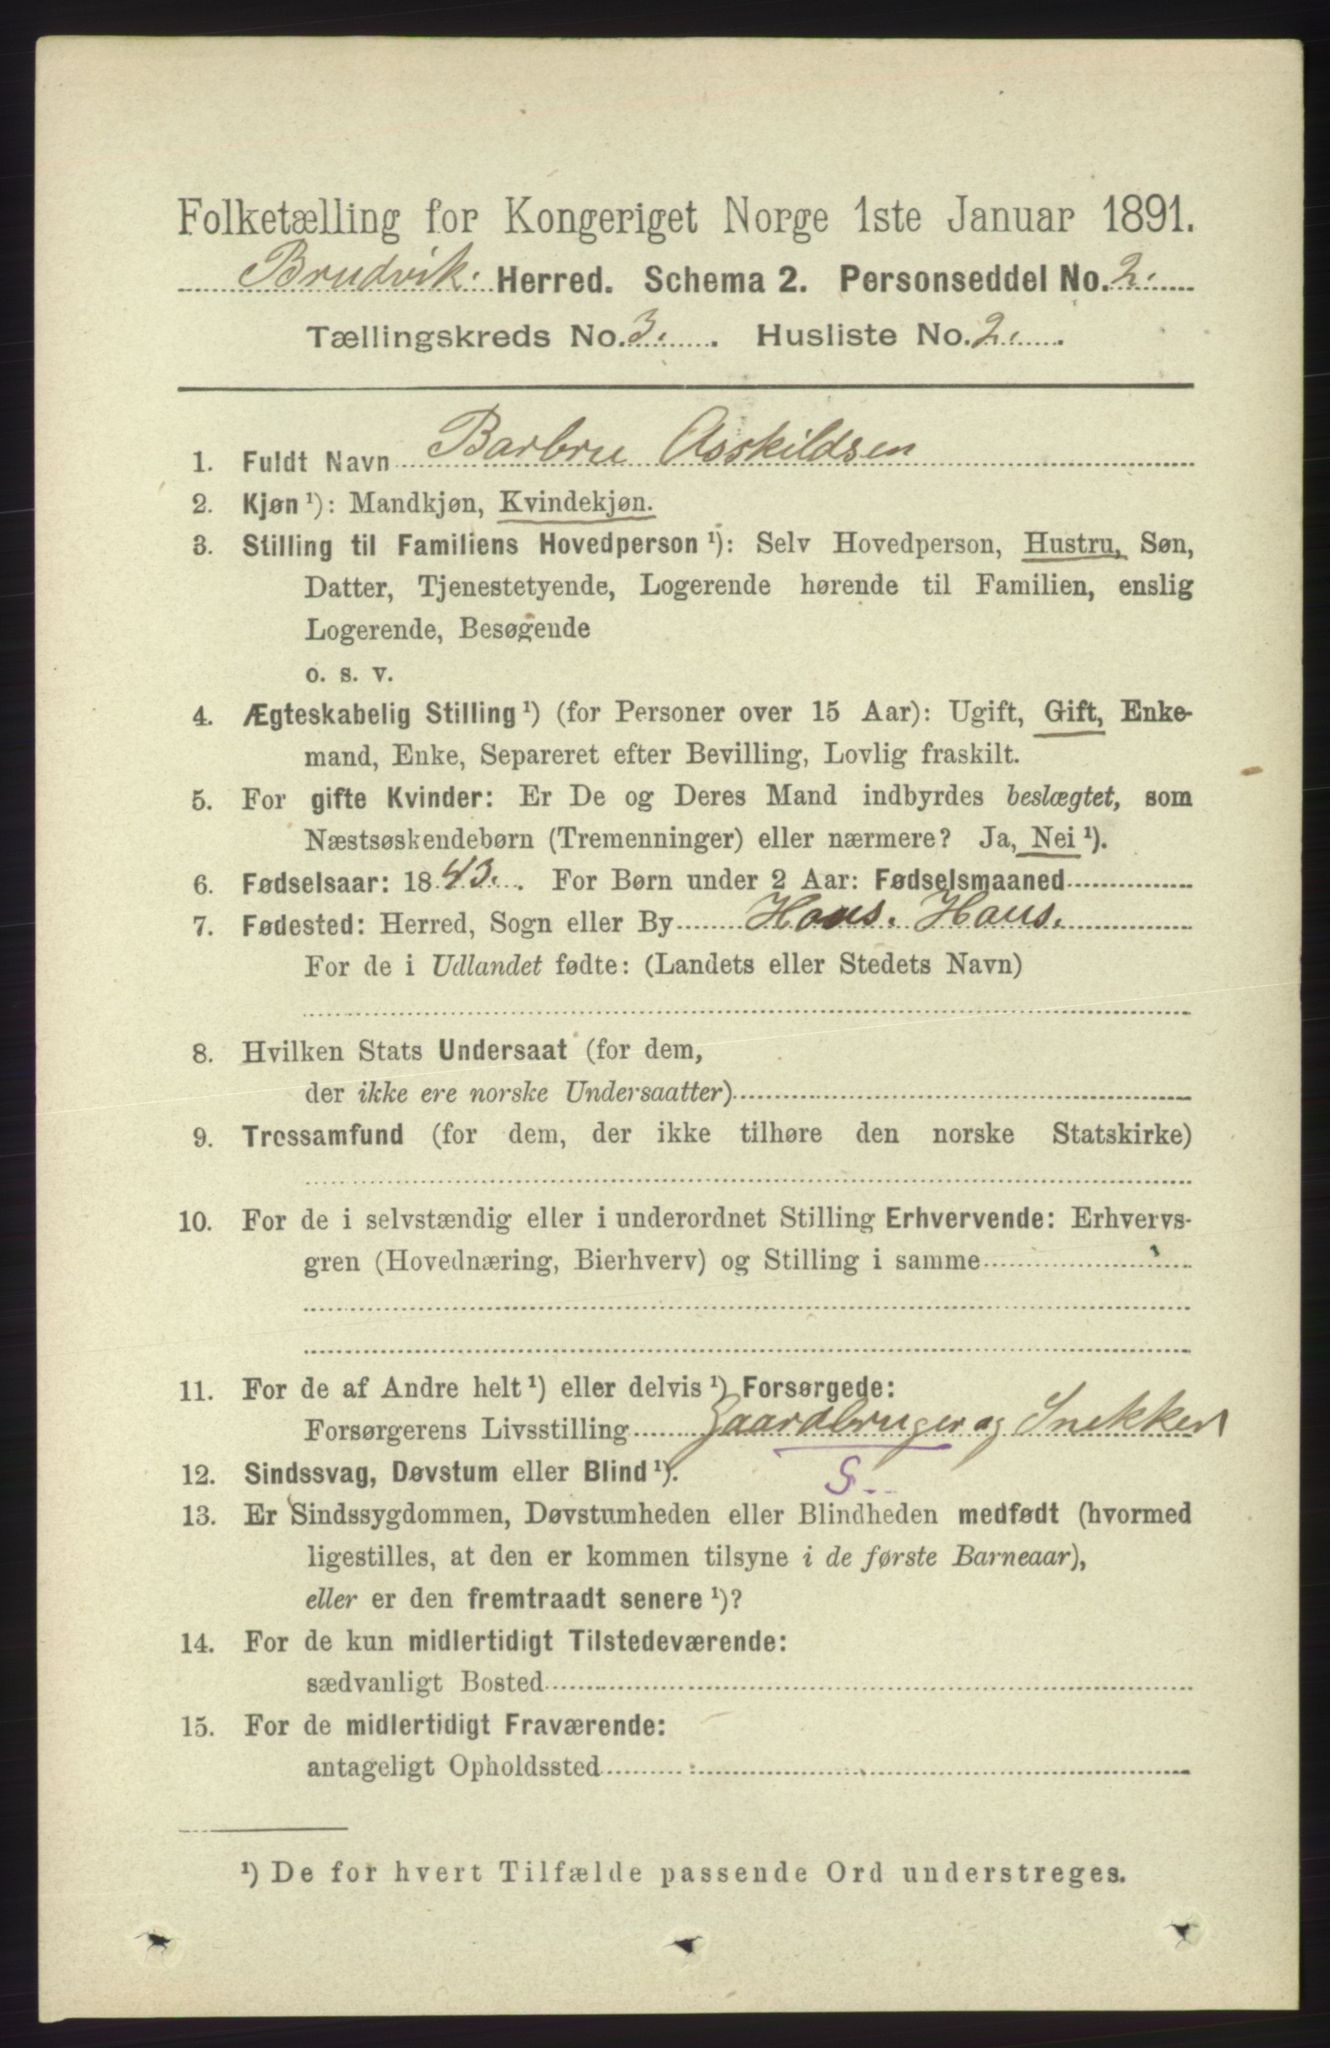 Folketælling for Kongeriget Norge 1ste Januar 1891.
Brudvik. Herred. Schema 2. Personseddel No. 2.
Tællingskreds No. 3. Husliste No. 2.
1. Fuldt Navn Barbru Asskildsen
2. Kjøn ¹): Mandkjøn, Kvindekjøn.
3. Stilling til Familiens Hovedperson ¹): Selv Hovedperson, Hustru, Søn,
Datter, Tjenestetyende, Logerende hørende til Familien, enslig
Logerende, Besøgende
o. s. v.
4. Ægteskabelig Stilling ¹) (for Personer over 15 Aar): Ugift, Gift, Enke-
mand, Enke, Separeret efter Bevilling, Lovlig fraskilt.
5. For gifte Kvinder: Er De og Deres Mand indbyrdes beslægtet, som
Næstsøskendebørn (Tremenninger) eller nærmere? Ja, Nei ¹).
6. Fødselsaar: 1843. For Børn under 2 Aar: Fødselsmaaned
7. Fødested: Herred, Sogn eller By Haus. Haus.
For de i Udlandet fødte: (Landets eller Stedets Navn)
8. Hvilken Stats Undersaat (for dem,
der ikke ere norske Undersaatter)
9. Trossamfund (for dem, der ikke tilhøre den norske Statskirke)
10. For de i selvstændig eller i underordnet Stilling Erhvervende: Erhvervs-
gren (Hovednæring, Bierhverv) og Stilling i samme
11. For de af Andre helt ¹) eller delvis ¹) Forsørgede:
Forsørgerens Livsstilling Gaardbruger og Snekker
12. Sindssvag, Døvstum eller Blind ¹). S.
13. Er Sindssygdommen, Døvstumheden eller Blindheden medfødt (hvormed
ligestilles, at den er kommen tilsyne i de første Barneaar),
eller er den fremtraadt senere ¹)?
14. For de kun midlertidigt Tilstedeværende:
sædvanligt Bosted
15. For de midlertidigt Fraværende:
antageligt Opholdssted
¹) De for hvert Tilfælde passende Ord understreges.